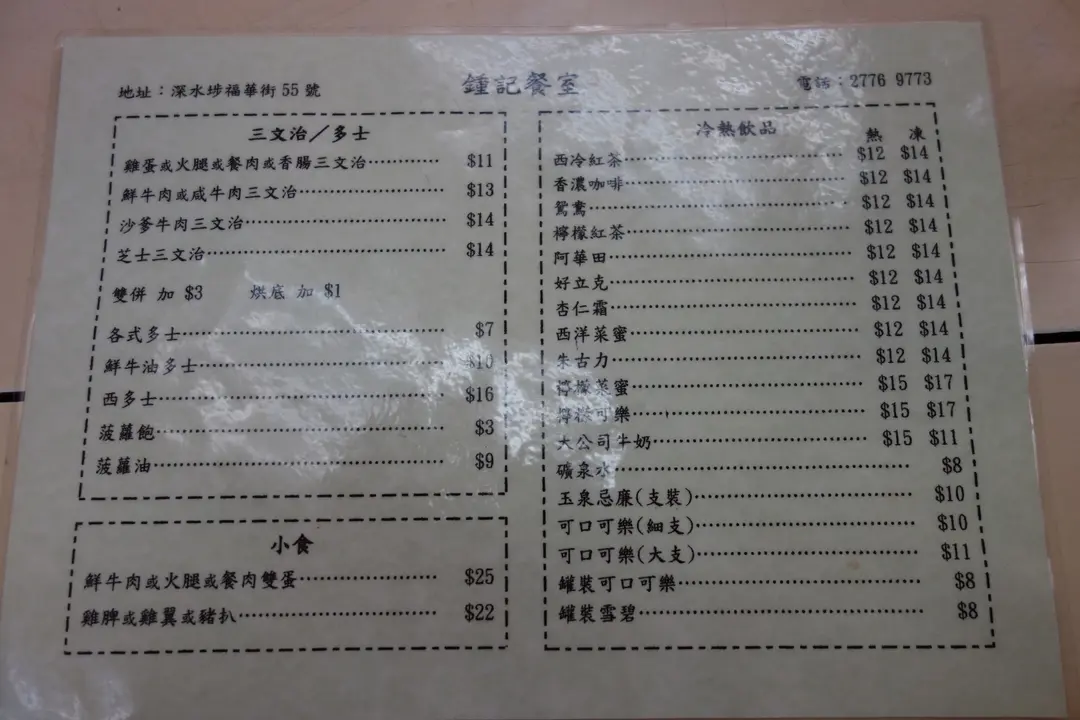 地址：深水埗福華街55號
鍾記餐室
電話：2776 9773
三文治／多士
雞蛋或火腿或餐肉或香腸三文治 $11
鮮牛肉或咸牛肉三文治 $13
沙爹牛肉三文治 $14
芝士三文治 $14
雙併 加 $3 烘底 加 $1
各式多士 $7
鮮牛油多士 $10
西多士 $16
菠蘿飽 $3
菠蘿油 $9
小食
鮮牛肉或火腿或餐肉雙蛋 $25
雞脾或雞翼或豬扒 $22
冷熱飲品
熱 凍
西冷紅茶 $12 $14
香濃咖啡 $12 $14
鴛鴦 $12 $14
檸檬紅茶 $12 $14
阿華田 $12 $14
好立克 $12 $14
杏仁霜 $12 $14
西洋菜蜜 $12 $14
朱古力 $12 $14
檸檬菜蜜 $15 $17
檸檬可樂 $15 $17
大公司牛奶 $15 $11
礦泉水 $8
玉泉忌廉(支裝) $10
可口可樂(細支) $10
可口可樂(大支) $11
罐裝可口可樂 $8
罐裝雪碧 $8